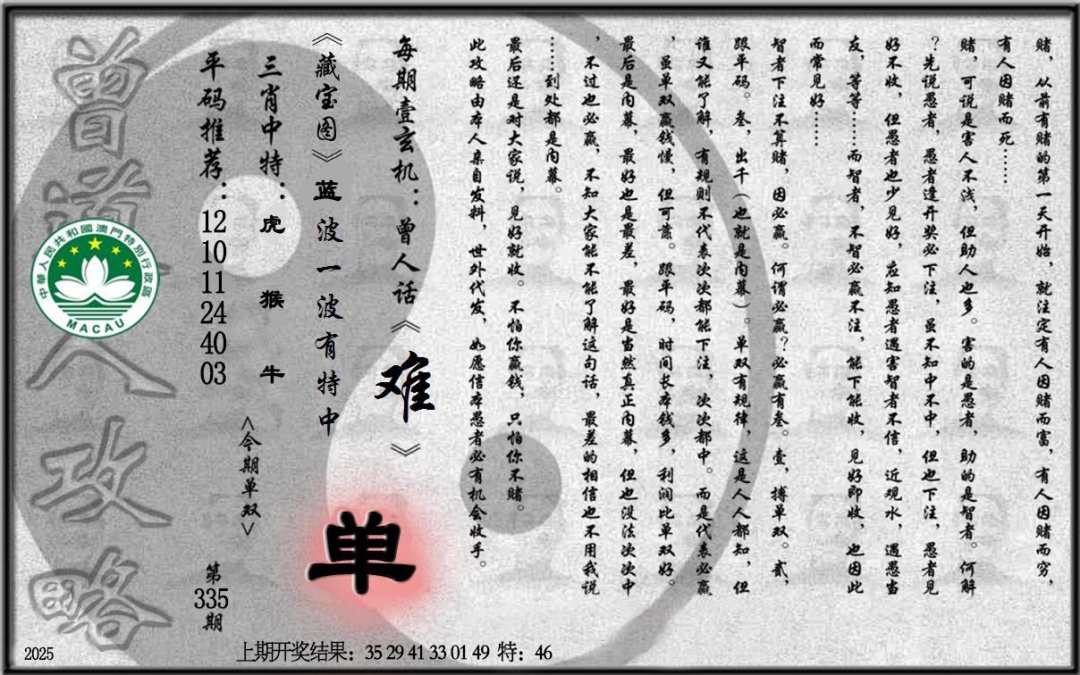 赌，从前有赌的第一天开始，就注定有人因赌而富，有人因赌而穷，
有人因赌而死……
赌，可说是害人不浅，但助人也多。害的是愚者，助的是智者。何解
？先说愚者，愚者逢开奖必下注，虽不知中不中，但也下注，愚者见
好不收，但愚者也少见好，应知愚者遇害智者不信，近观水，遇愚当
友，等等……而智者，不智必赢不注，能下能收，见好即收，也因此
而常见好……
智者下注不算赌，因必赢。何谓必赢？必赢有叁。壹，搏单双。贰，
跟单码。叁，出千（也就是内幕）。单双有规律，这是人人都知，但
谁又能了解，有规则不代表次次都能下注，次次都中。而是代表必赢
，虽单双赢钱慢，但可靠。跟单码，时间长本钱多，利润比单双好。
最后是内幕，最好也是最差，最好是当然真正内幕，但也没法次次中
，不过也必赢，不知大家能不能了解这句话，最差的相信也不用我说
……到处都是内幕。
最后还是对大家说，见好就收。不怕你赢钱，只怕你不赌。
此攻略由本人亲自发料，世外代发，如愿信本愚者必有机会收手。
每期壹玄机：曾人话《难》
《藏宝图》蓝波一波有特中
单
三肖中特：虎 猴 牛
<今期单双>
平码推荐：12 10 11 24 40 03
第335期
曾道人攻略
中華人民共和國澳門特別行政區
MACAU
2025
上期开奖结果：35 29 41 33 01 49 特：46